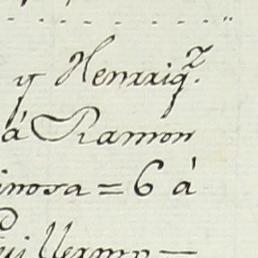 y Henrriq.z
á Ramon
inosa = 6 á
Guillermo —